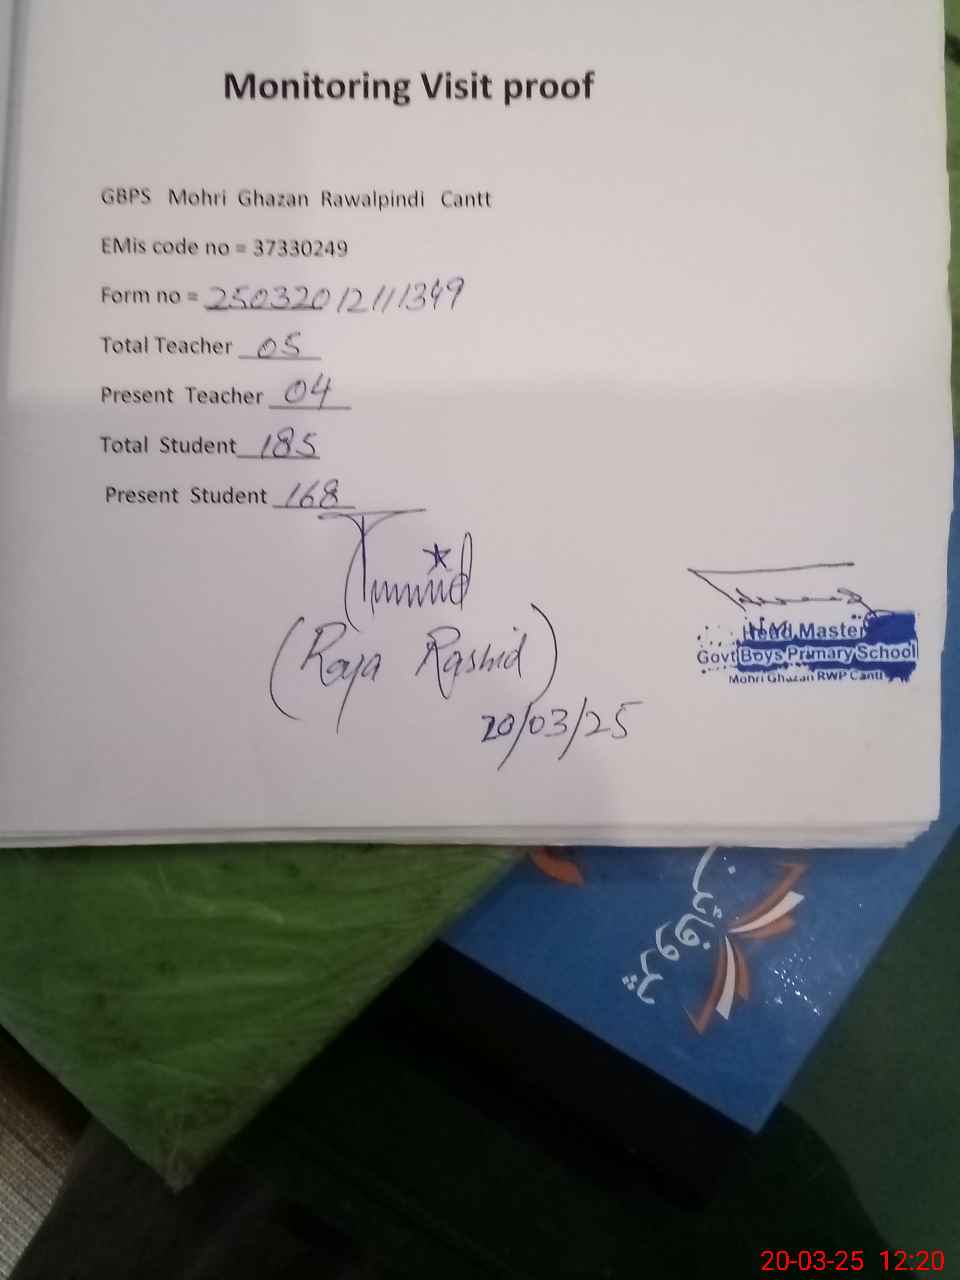 Monitoring Visit proof
GBPS Mohri Ghazan Rawalpindi Cantt
EMis code no = 37330249
Form no = 25032012111349
Total Teacher 05
Present Teacher 04
Total Student 185
Present Student 168
(Raja Rashid)
20/03/25
Head Master
Govt Boys Primary School
Mohri Ghazan RWP Cantt
20-03-25 12:20